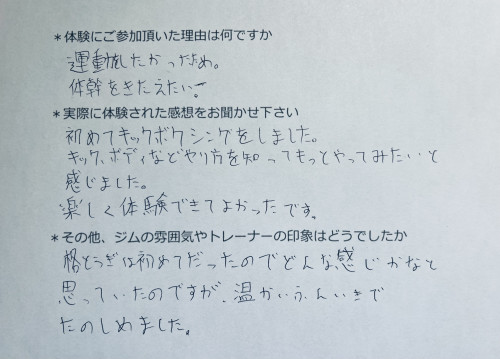 ＊体験にご参加頂いた理由は何ですか
運動したかったため。
体幹をきたえたい。
＊実際に体験された感想をお聞かせ下さい
初めてキックボクシングをしました。
キック、ボディなどやり方を知ってもっとやってみたいと
感じました。
楽しく体験できてよかったです。
＊その他、ジムの雰囲気やトレーナーの印象はどうでしたか
格とうぎは初めてだったのでどんな感じかなと
思っていたのですが、温かいふんいきで
たのしめました。